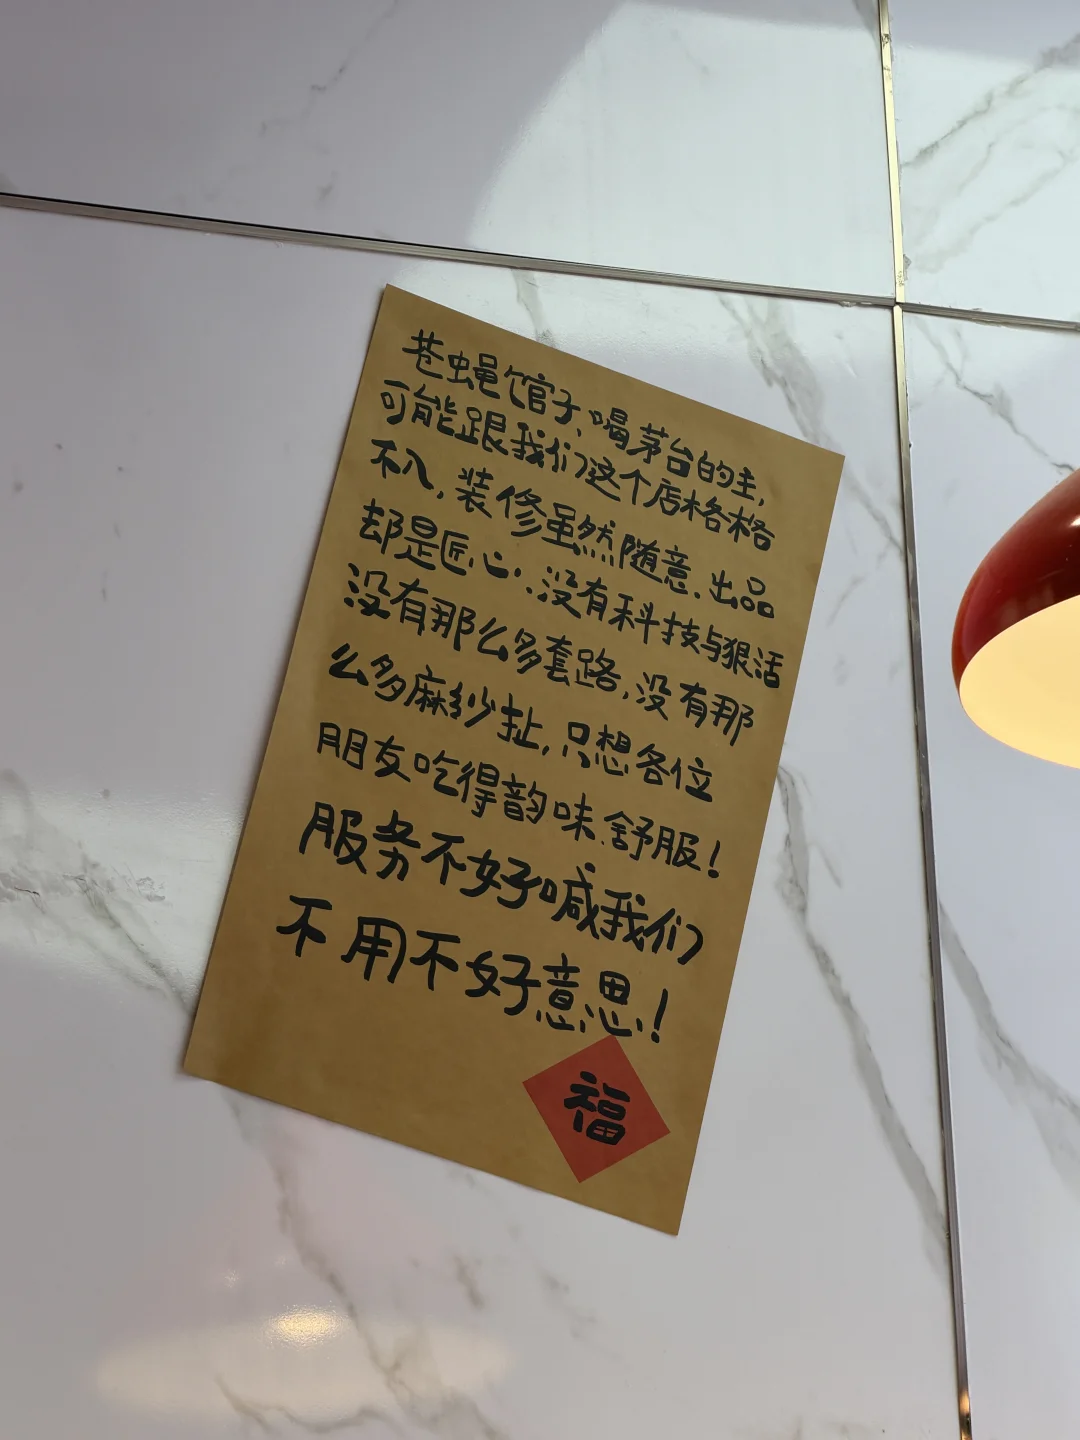 苍蝇馆子、喝茅台的主,
可能跟我们这个店格格
不入,装修虽然随意、出品
却是匠心:没有科技与狠活
没有那么多套路,没有那
么多麻纱扯,只想各位
朋友吃得韵味、舒服!
服务不好喊我们
不用不好意思!
福